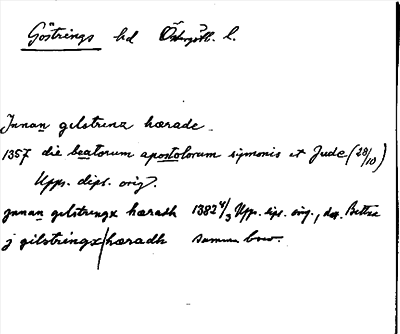 Göstrings hd Östergötl. l.
Jnnan gelstrena hærade.
1357 die beatorum apostolorum symonis et Jude (28/10)
Upps. dipl. orig.
jnnan gilstrengx hæradh 1382 4/3 Upp. dipl. orig., dep. Bettna
j gilstringx/hæradh samma brev.